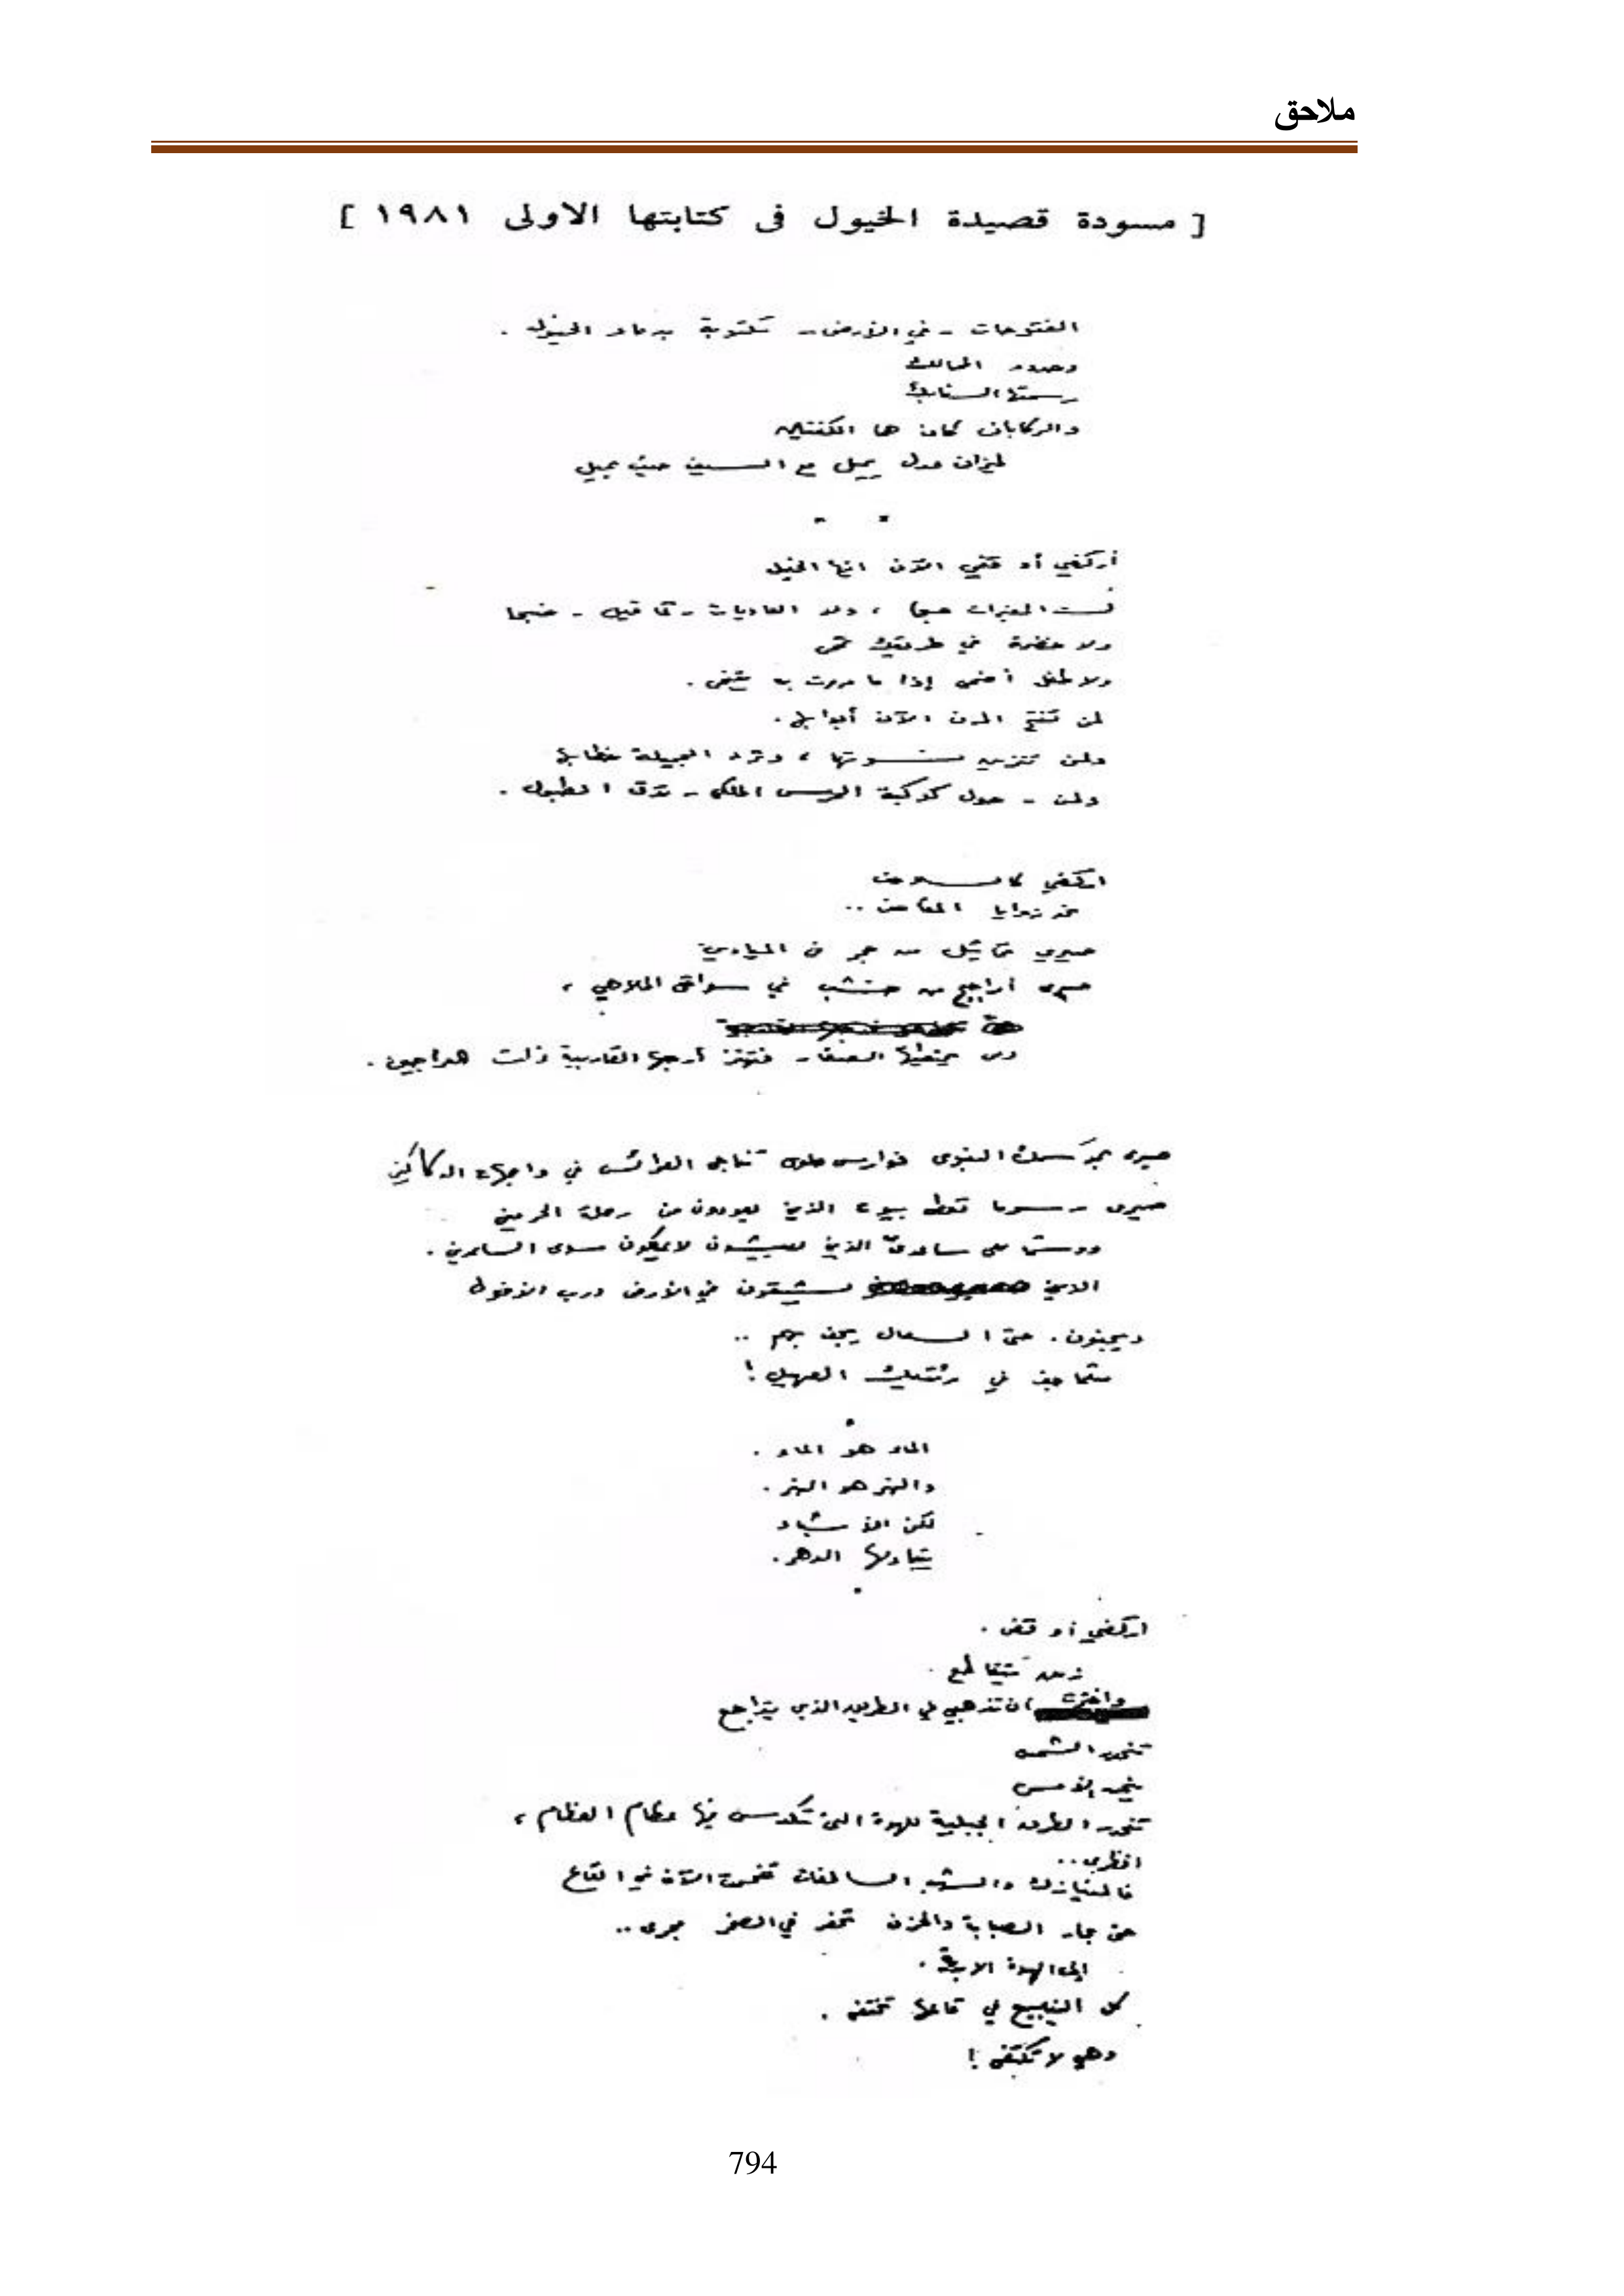 ملاحق
[ مسودة قصيدة الخيول فى كتابتها الاولى ١٩٨١ ]
الفتوحات - في الأرض - مكتوبة بدماء الخيول .
وحدود الممالك
رسمتها السنابك
والركابان كانا هما الكفتين
لميزان عدل يميل مع السيف حيث يميل
أركضي أو قفي الآن ايها الخيل
لست المغيرات صبحا ، ولا العاديات - كما قيل - ضبحا
ولا خضرة في طريقك تمحى
ولا طفل أضحى إذا ما مررت به يتنحى .
لن تفتح المدن الآن أبوابها .
ولن تتزين نسوتها ، وترد الجميلة خطابها
ولن - حول كوكبة الحرس الملكي - تدق الطبول .
اركضي كالسلاحف
نحو زوايا المتاحف ..
صيري تماثيل من حجر في الميادين
صيرى أراجيح من خشب في سوانق الملاهي ،
يمتطيها الصغار - فتهتز أرجلها القاربية ذات العراجين .
صيرى بموسمك النبوى فوارس حلوى تناجى العرائس في واجهات الدكاكين
صيرى رسوما تغطى بيوت الذين يعودون من رحلة الحرمين
ووشما على ساعدىّ الذين يعيشون لا يملكون سوى الساعدين .
الذين يشقون في الأرض درب
ويجبنون . حتى السعال يجف بهم ..
مثلما جف في رئتيك الصهيل !
الماء هو الماء .
والنهر هو النهر .
لكن الأشياء
يتبادلها الدهر .
اركضي أو قفي .
زمن يتقاطع .
واخترت أن تذهبي في الطريق الذي يتراجع
تنحدر الشمس
ينحدر الأمس
تنحدر الطرق الجبلية للهوة التى تتكدس فيها عظام العظام ،
انظرى ..
فالنيازك والشهب الساطعات تغمس الآن في القاع
حتى بحار الصبابة والحزن تحفر في الصخر مجرى ..
إلى الهوة الأبدية .
كل الينابيع في قاعها تختفى .
وهي لا تكتفى !
794